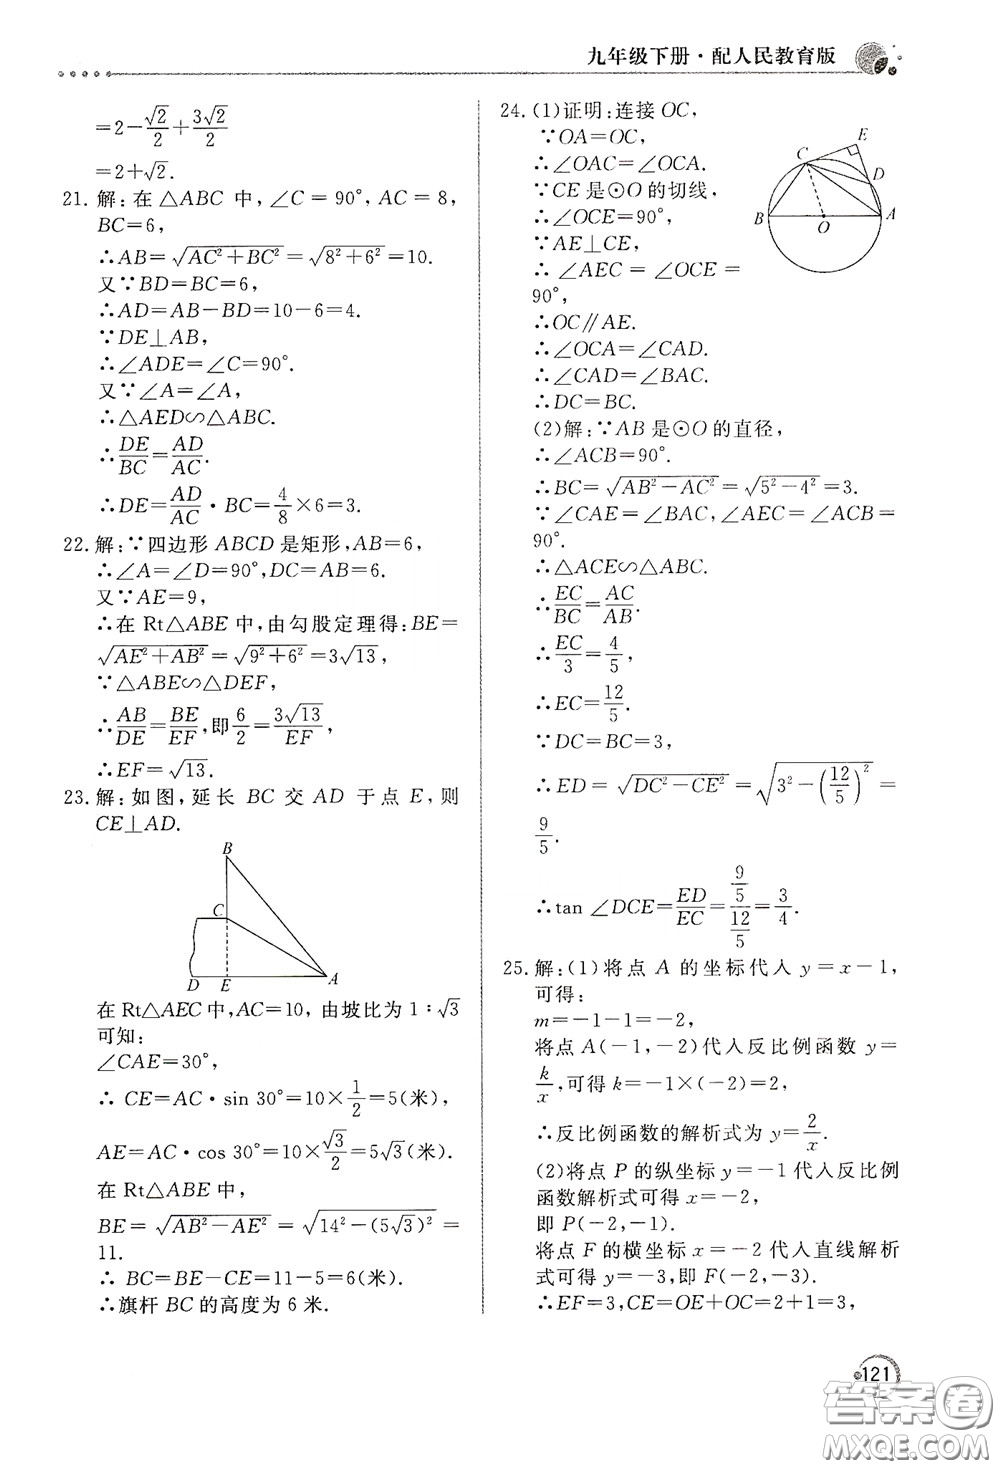 九年级下册·配人民教育版
=2-√2/2+3√2/2
=2+√2.
21. 解:在△ABC中,∠C=90°,AC=8,
BC=6,
∴AB=√(AC²+BC²)=√(8²+6²)=10.
又∵BD=BC=6,
∴AD=AB-BD=10-6=4.
∵DE⊥AB,
∴∠ADE=∠C=90°.
又∵∠A=∠A,
∴△AED∽△ABC.
∴DE/BC=AD/AC.
∴DE=AD/AC·BC=4/8×6=3.
22. 解:∵四边形ABCD是矩形,AB=6,
∴∠A=∠D=90°,DC=AB=6.
又∵AE=9,
∴在Rt△ABE中,由勾股定理得:BE=
√(AE²+AB²)=√(9²+6²)=3√13,
∵△ABE∽△DEF,
∴AB/DE=BE/EF,即6/2=3√13/EF,
∴EF=√13.
23. 解:如图,延长BC交AD于点E,则
CE⊥AD.
B
C
D E A
在Rt△AEC中,AC=10,由坡比为1∶√3
可知:
∠CAE=30°,
∴CE=AC·sin 30°=10×1/2=5(米),
AE=AC·cos 30°=10×√3/2=5√3(米).
在Rt△ABE中,
BE=√(AB²-AE²)=√(14²-(5√3)²)=
11.
∴BC=BE-CE=11-5=6(米).
∴旗杆BC的高度为6米.
24. (1)证明:连接OC,
∵OA=OC,
∴∠OAC=∠OCA.
∵CE是⊙O的切线,
∴∠OCE=90°,
∵AE⊥CE,
∴∠AEC=∠OCE=
90°,
∴OC∥AE.
∴∠OCA=∠CAD.
∴∠CAD=∠BAC.
∴DC=BC.
E
C
D
B O A
(2)解:∵AB是⊙O的直径,
∴∠ACB=90°.
∴BC=√(AB²-AC²)=√(5²-4²)=3.
∵∠CAE=∠BAC,∠AEC=∠ACB=
90°.
∴△ACE∽△ABC.
∴EC/BC=AC/AB.
∴EC/3=4/5,
∴EC=12/5.
∵DC=BC=3,
∴ED=√(DC²-CE²)=√(3²-(12/5)²)=
9/5.
∴tan∠DCE=ED/EC=(9/5)/(12/5)=3/4.
25. 解:(1)将点A的坐标代入y=x-1,
可得:
m=-1-1=-2,
将点A(-1,-2)代入反比例函数y=
k/x,可得k=-1×(-2)=2,
∴反比例函数的解析式为y=2/x.
(2)将点P的纵坐标y=-1代入反比例
函数解析式可得x=-2,
即P(-2,-1).
将点F的横坐标x=-2代入直线解析
式可得y=-3,即F(-2,-3).
∴EF=3,CE=OE+OC=2+1=3,
121
答案圈
MXQE.COM